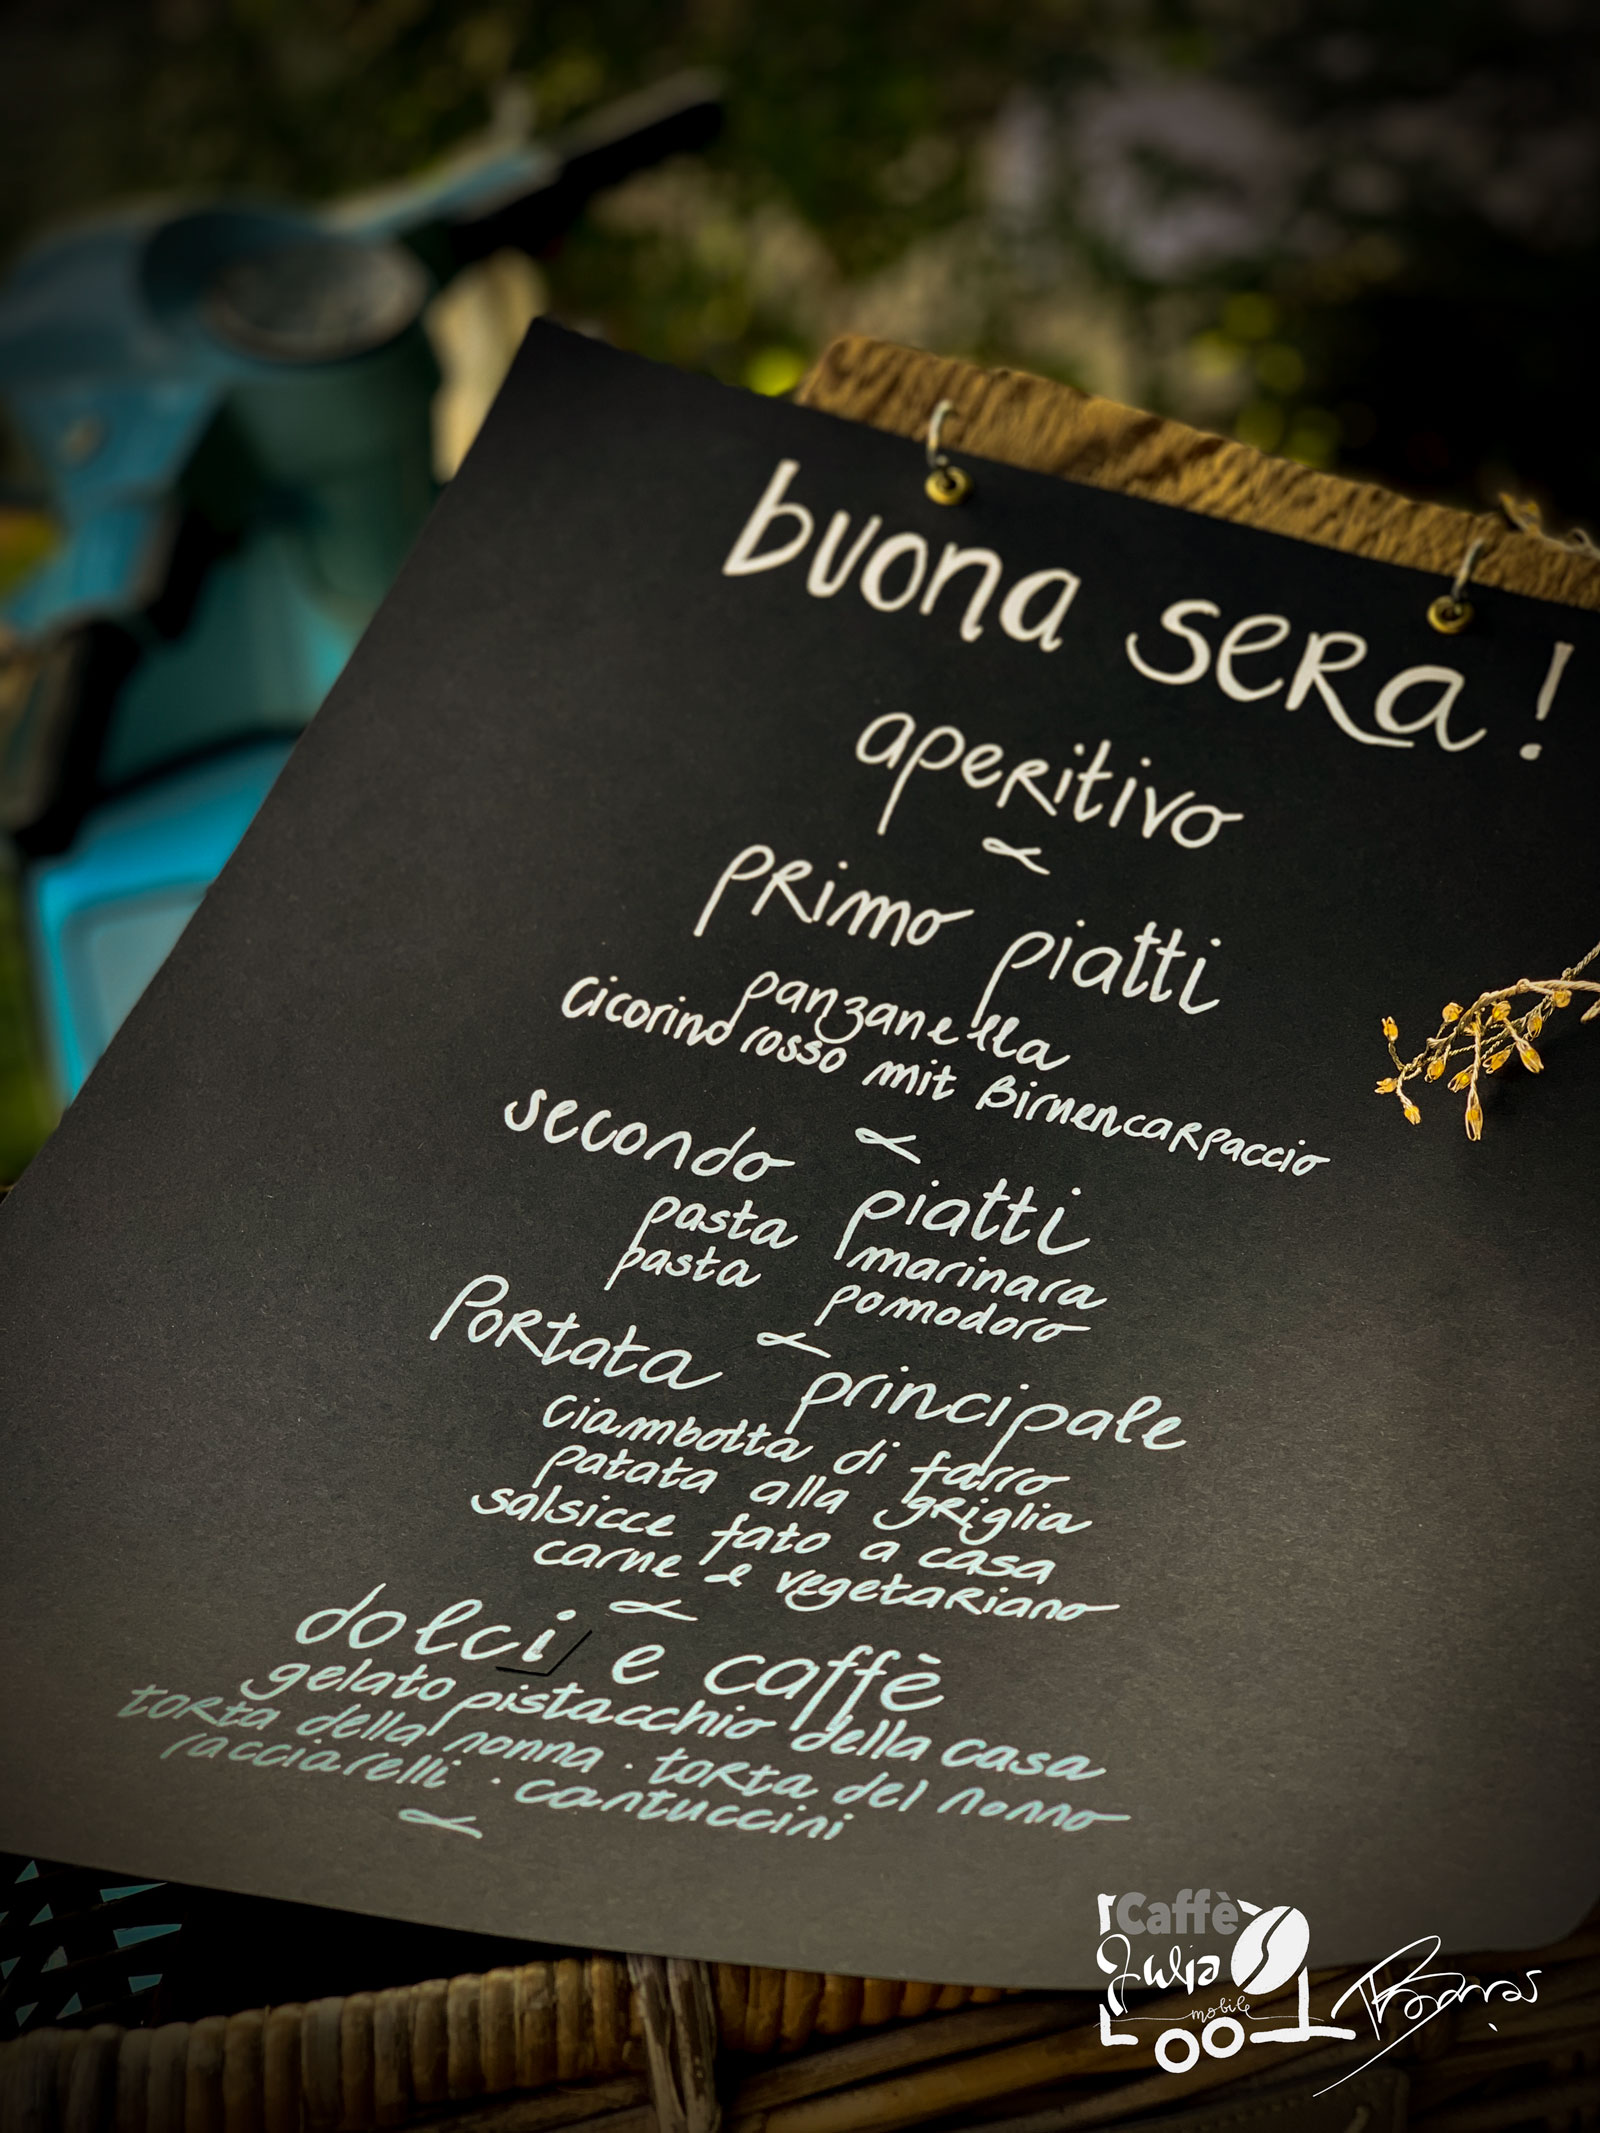 buona sera!
aperitivo
primo piatti
panzanella
Cicorino rosso mit Birnencarpaccio
secondo piatti
pasta marinara
pasta pomodoro
Portata principale
ciambotta di farro
patata alla griglia
salsicce fato a casa
carne e vegetariano
dolci e caffè
gelato pistacchio della casa
torta della nonna · torta del nonno
racciarelli · cantuccini
Caffè
Julia
mobile